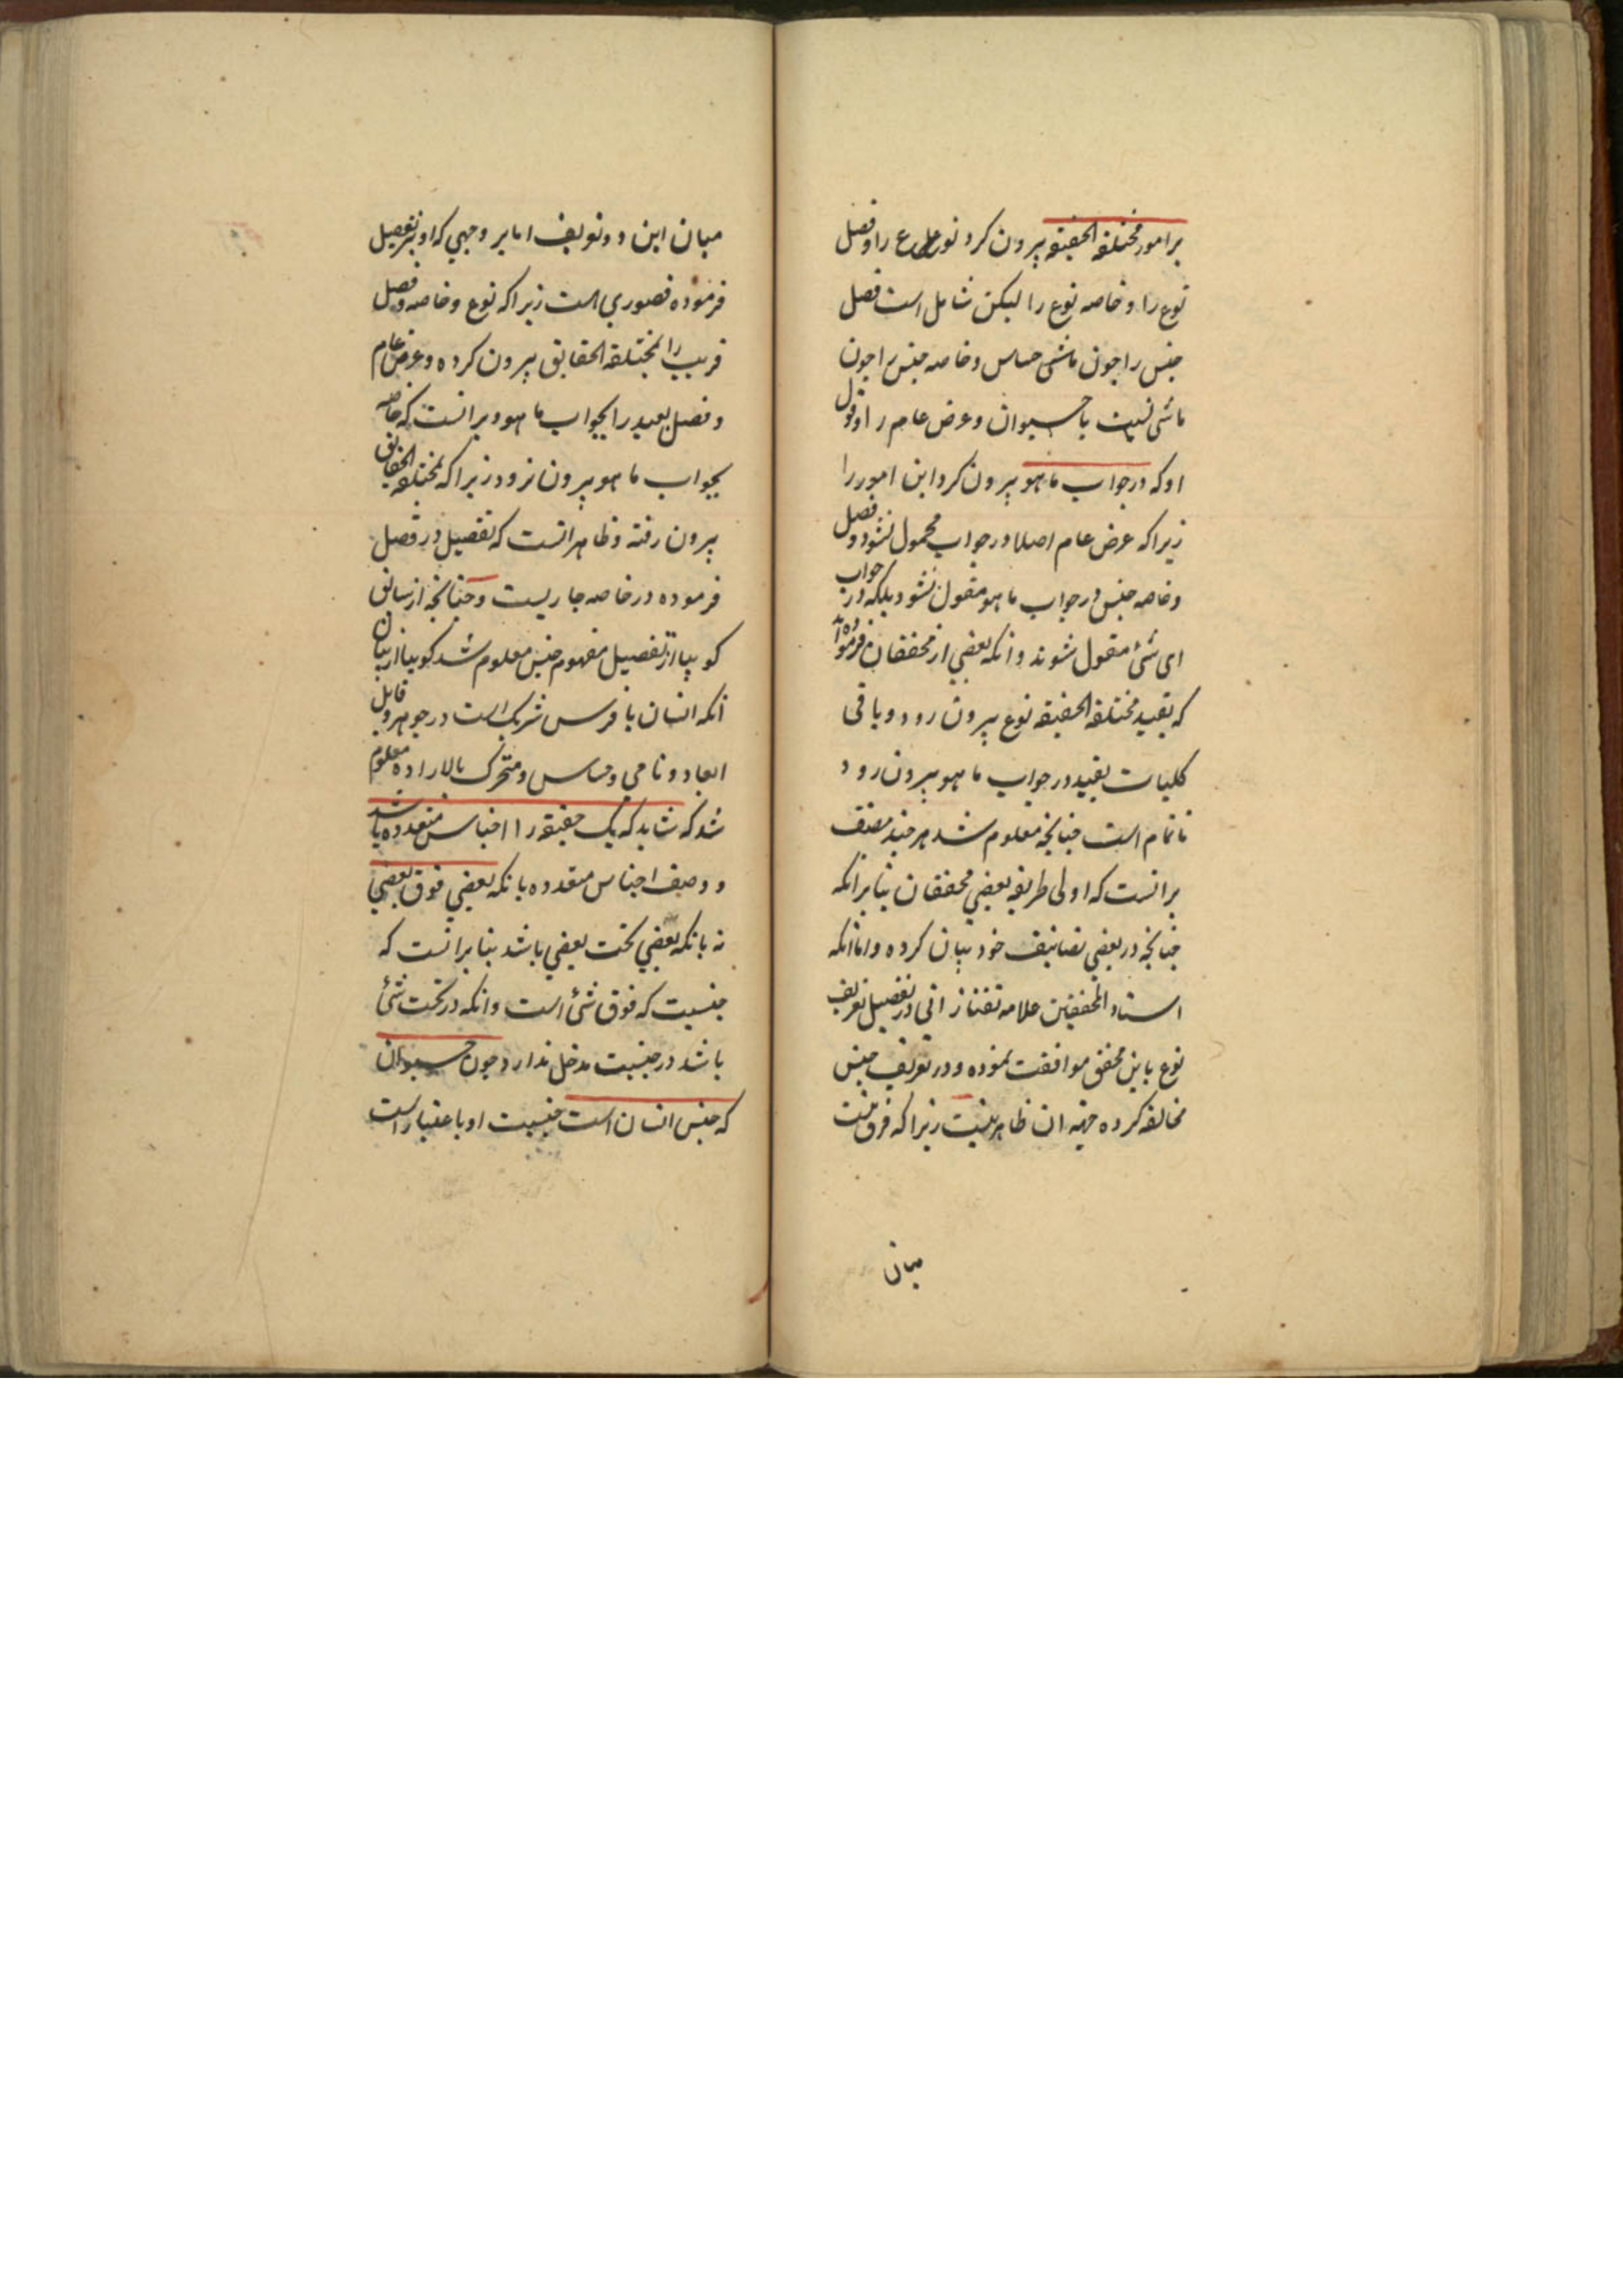 بر امور مختلفة الحقیقه بیرون کرد نوع را و فصل
نوع را و خاصه نوع را لیکن شامل است فصل
جنس را چون حساس و خاصه جنس را چون
ماشی نسبت با حیوان و عرض عام را و قول
او که در جواب ما هو بیرون کرد این امور را
زیرا که عرض عام اصلا در جواب محمول نشود و فصل
و خاصه جنس در جواب ما هو مقول نشود بلکه در جواب
ای شئ مقول شوند و انکه بعضی از محققان فرموده اند
که بقید مختلفة الحقیقه نوع بیرون رود و باقی
کلیات بقید در جواب ما هو بیرون رود
ناتمام است چنانچه معلوم شد هر چند مصنف
برانست که اولی طریقه بعضی محققان بنا برانکه
چنانچه در بعضی تصانیف خود بیان کرده و اما انکه
استاد المحققین علامه تفتازانی در تفصیل تعریف
نوع باین محقق موافقت نموده و در تعریف جنس
مخالفه کرده جهة ان ظاهر نیست زیرا که فرق نیست
میان
میان این دو تعریف اما بر وجهی که او تفصیل
فرموده قصوری است زیرا که نوع و خاصه و فصل
قریب را بمختلفة الحقایق بیرون کرده و عرض عام
و فصل بعید را بجواب ما هو و برانست که خاصه
بجواب ما هو بیرون نرود زیرا که بمختلفة الحقایق
بیرون رفته و ظاهر انست که تفصیل در فصل
فرموده در خاصه جاریست و چنانچه از سابق
کوییا از تفصیل مفهوم جنس معلوم شد کوییا از بیان
انکه انسان با فرس شریک است در جوهر و قابل
ابعاد و نامی و حساس و متحرک بالاراده معلوم
شد که شاید که یک حقیقه را اجناس متعدده باشد
و وصف اجناس متعدده بانکه بعضی فوق بعضی
نه بانکه بعضی تحت بعضی باشد بنا برانست که
جنسیت که فوق شئ است و انکه در تحت شئ
باشد در جنسیت مدخل ندارد چون حیوان
که جنس انسان است جنسیت او باعتبار است